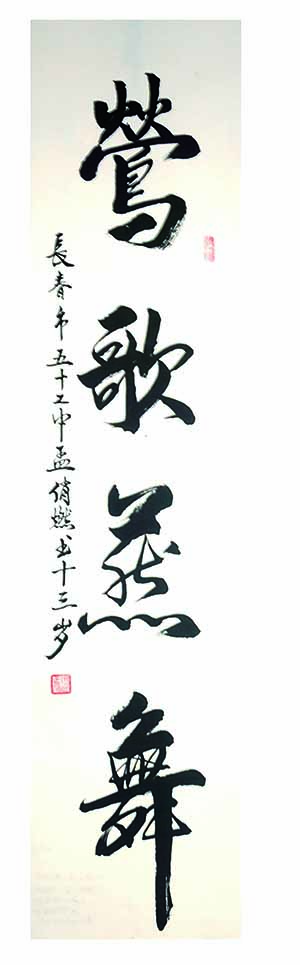 鶯歌燕舞
長春市五十二中孟俏燃书十三岁